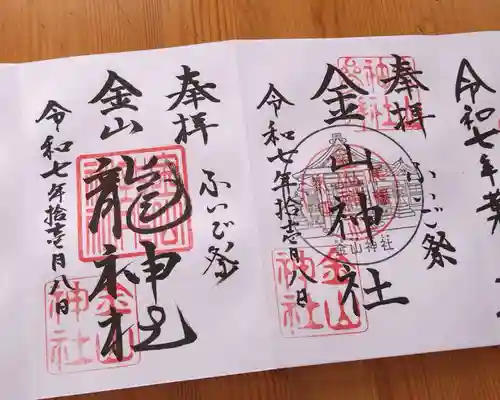 令和七年
奉拝
金山神社
ふいご祭
令和七年拾壱月八日
金山神社
金山神社
奉拝
金山
龍神社
ふいご祭
令和七年拾壱月八日
金山神社